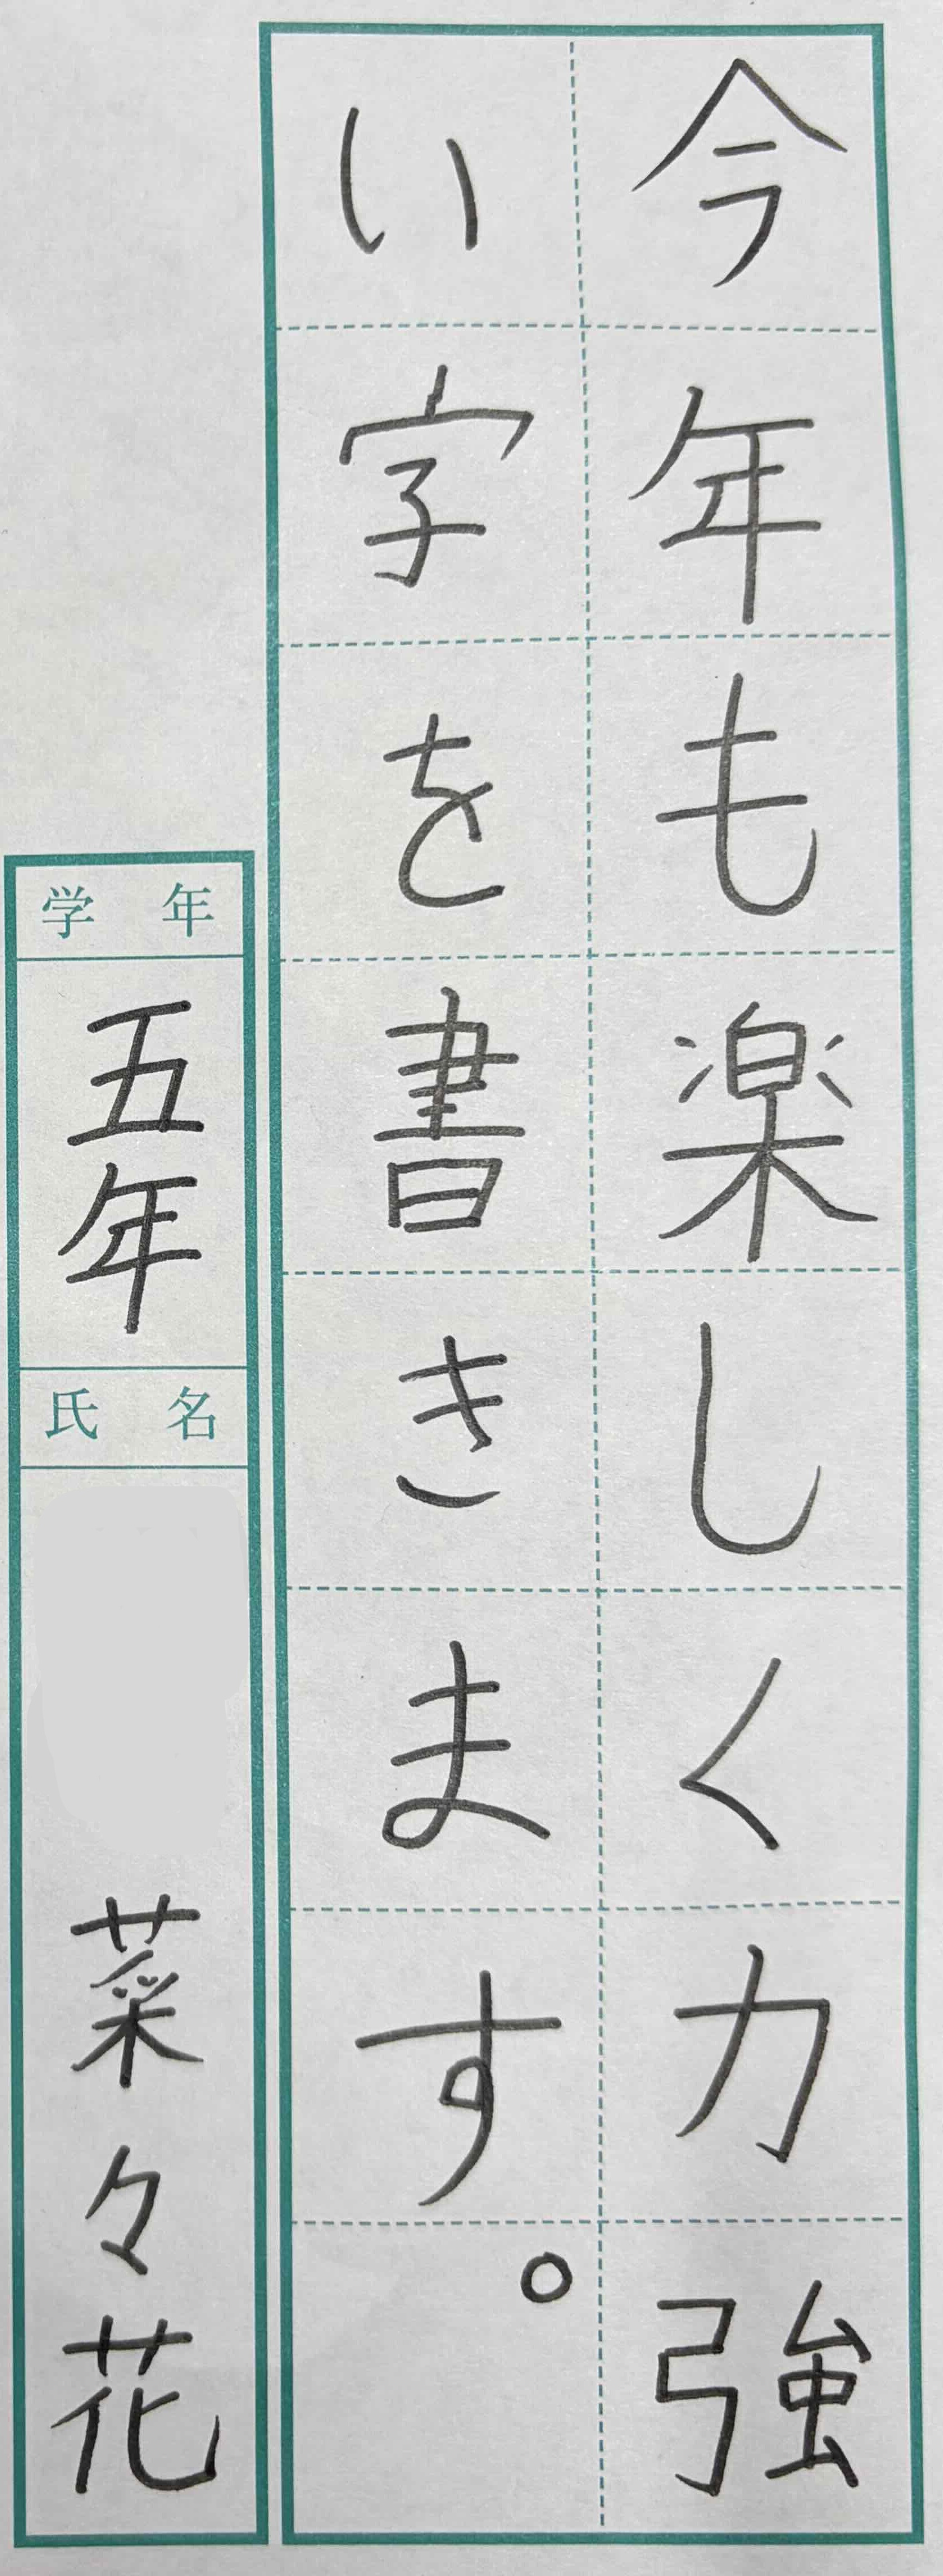 今年も楽しく力強
い字を書きます。
学年
五年
氏名
菜々花